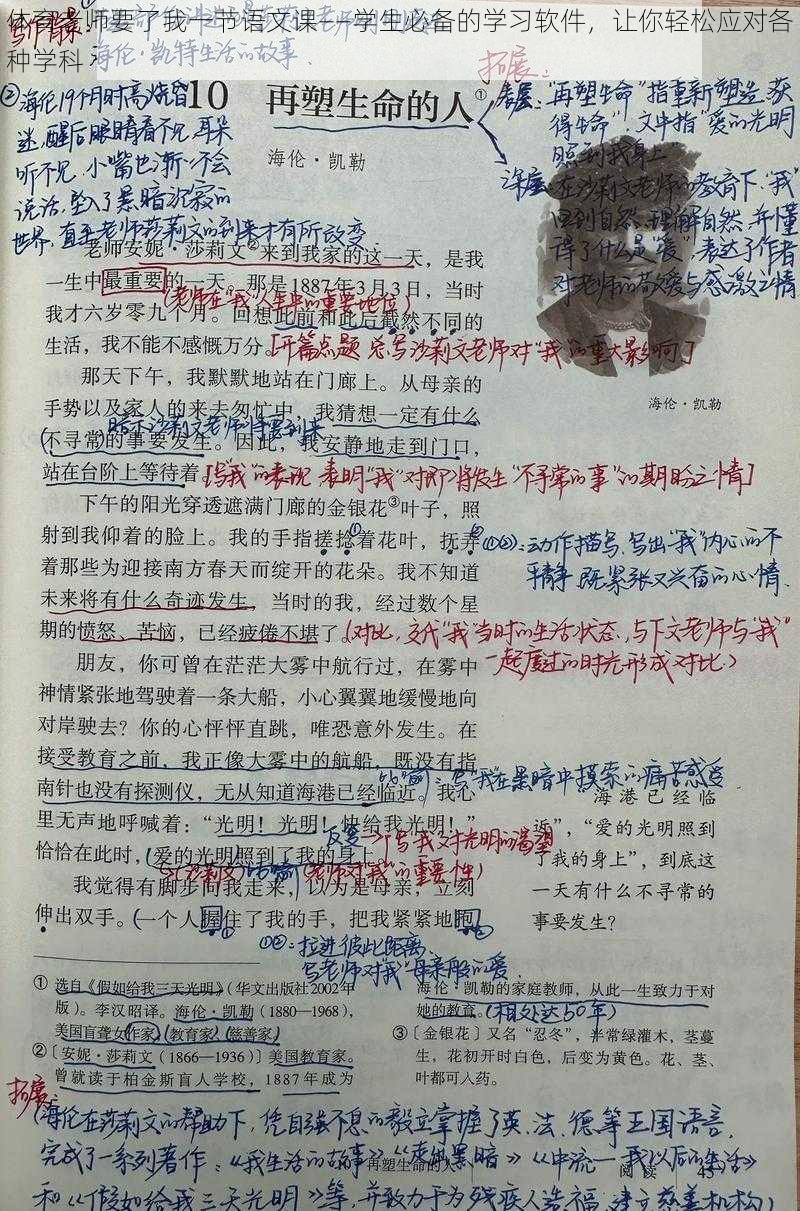 体育老师要了我一节语文课——学生必备的学习软件，让你轻松应对各
种学科
海伦·凯特生活的故事.
拓展:
②海伦19个月时高烧昏
迷,醒后眼睛看不见,耳朵
听不见,小嘴也渐不会
说话,坠入了黑暗沉寂的
世界,直至老师莎莉文的到来才有所改变
10 再塑生命的人①
海伦·凯勒
表层:“再塑生命”指重新塑造,获
得生命”,文中指“爱的光明
照到我身上
深层:在沙莉文老师的教育下,“我”
回到自然,理解自然,并懂
得了什么是“爱”,表达了作者
对老师的敬爱与感激之情
海伦·凯勒
老师安妮·莎莉文②来到我家的这一天，是我
一生中最重要的一天。那是1887年3月3日，当时
(老师在“我”人生中的重要地位)
我才六岁零九个月。回想此前和此后截然不同的
生活，我不能不感慨万分。[开篇点题 总写沙莉文老师对“我”的重大影响]
那天下午，我默默地站在门廊上。从母亲的
手势以及家人的来去匆忙中，我猜想一定有什么
暗示沙莉文老师即将要到来
不寻常的事要发生。因此，我安静地走到门口，
站在台阶上等待着[写“我”的表现 表明“我”对即将发生“不寻常的事”的期盼之情]
下午的阳光穿透遮满门廊的金银花③叶子，照
射到我仰着的脸上。我的手指搓捻①着花叶，抚弄②
①②:动作描写,写出“我”内心的不
平静,既紧张又兴奋的心情.
着那些为迎接南方春天而绽开的花朵。我不知道
未来将有什么奇迹发生，当时的我，经过数个星
期的愤怒、苦恼，已经疲倦不堪了(对比,交代“我”当时的生活状态,与下文老师与“我”
一起度过的时光形成对比)
朋友，你可曾在茫茫大雾中航行过，在雾中
神情紧张地驾驶着一条大船，小心翼翼地缓慢地向
对岸驶去？你的心怦怦直跳，唯恐意外发生。在
接受教育之前，我正像大雾中的航船，既没有指
比喻:写“我”在黑暗中摸索的痛苦感受
南针也没有探测仪，无从知道海港已经临近。我心
里无声地呼喊着：“光明！光明！快给我光明！”
反复→写我对光明的渴望
恰恰在此时，(爱的光明照到了我的身上
(莎莉文)比喻(老师对“我”的重要性)
海港已经临
近”，“爱的光明照到
了我的身上”，到底这
一天有什么不寻常的
事要发生？
我觉得有脚步向我走来，以为是母亲，立刻
伸出双手。(一个人握住了我的手，把我紧紧地抱
①②:拉进彼此距离.
写老师对“我”母亲般的爱.
① 选自《假如给我三天光明》（华文出版社2002年
版）。李汉昭译。海伦·凯勒（1880—1968），
美国盲聋女作家、教育家、慈善家
② 〔安妮·莎莉文（1866—1936）〕美国教育家。
曾就读于柏金斯盲人学校，1887年成为
海伦·凯勒的家庭教师，从此一生致力于对
她的教育。(相处达50年)
③ 〔金银花〕又名“忍冬”，半常绿灌木，茎蔓
生，花初开时白色，后变为黄色。花、茎、
叶都可入药。
拓展:
(海伦在莎莉文的帮助下,凭自强不息的毅力掌握了英、法、德等五国语言,
完成了一系列著作:《我生活的故事》《走出黑暗》《中流—我以后的生活》
再塑生命的人 阅读 45
和《假如给我三天光明》等,并致力于为残疾人造福,建立慈善机构)